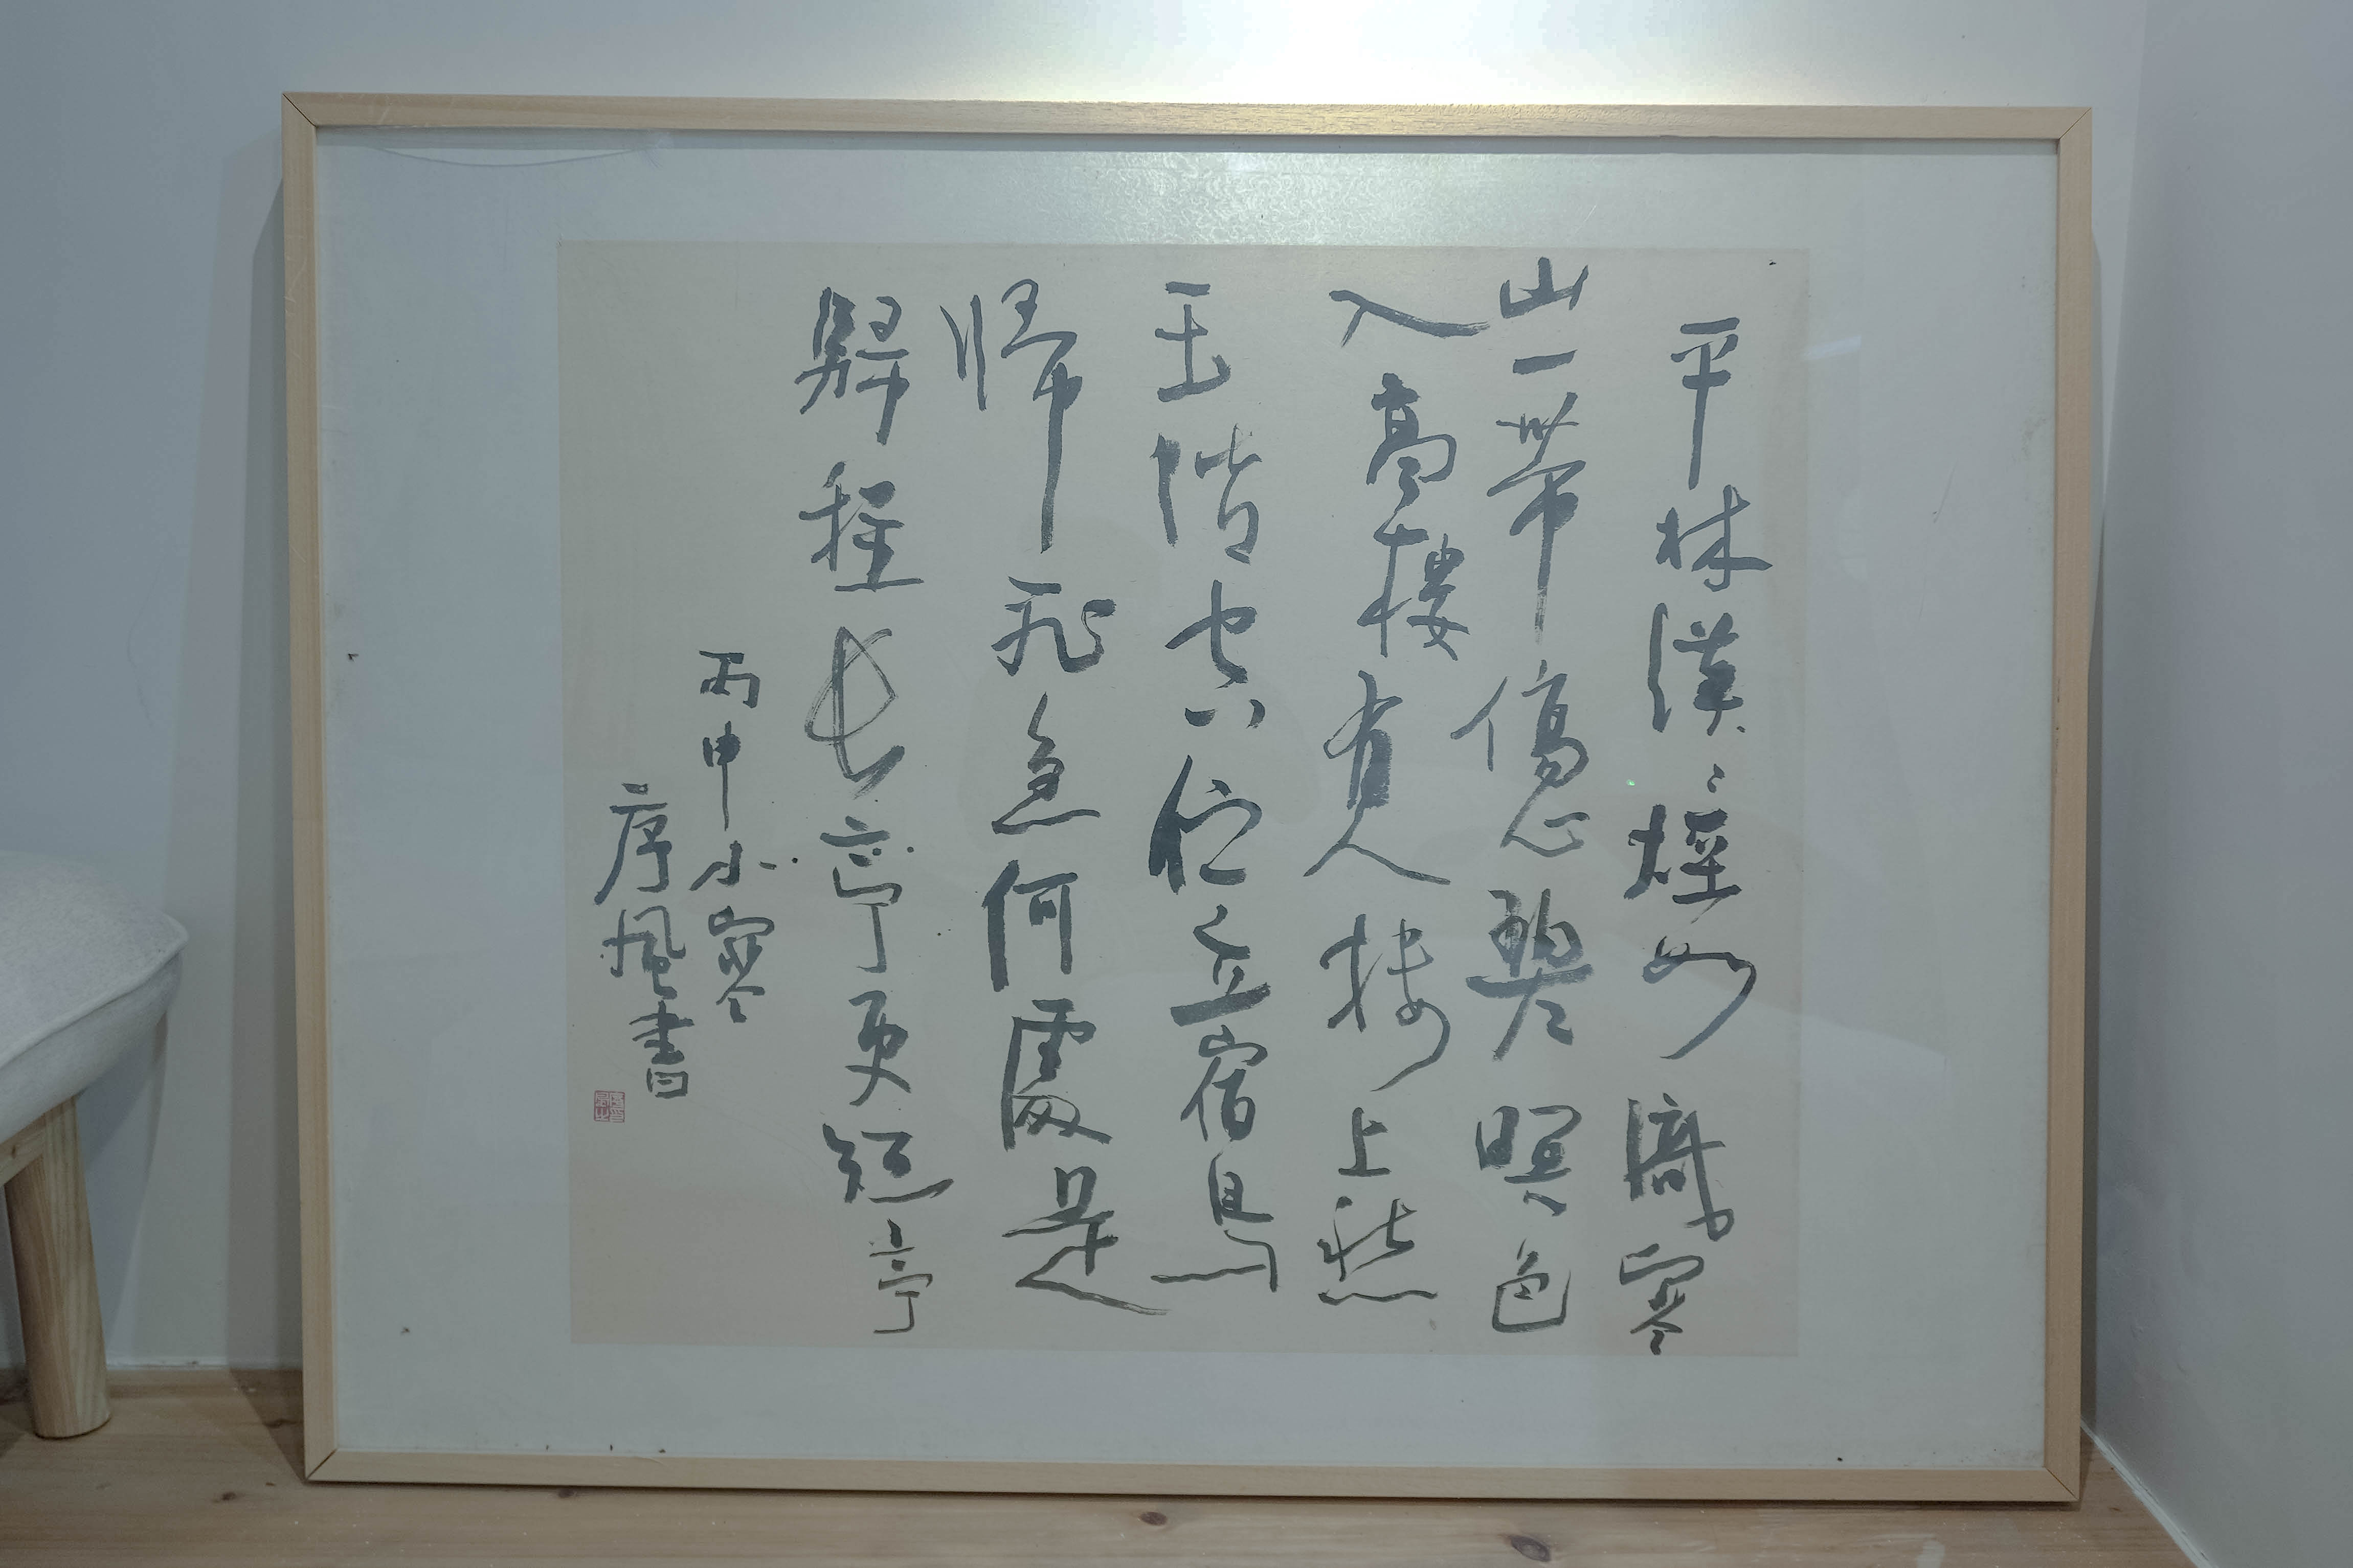 平林漠〻煙如織寒
山一帶傷心碧暝色
入高樓有人樓上愁
玉階空佇立宿鳥
歸飛急何處是
歸程長亭更短亭
丙申小寒
序風書